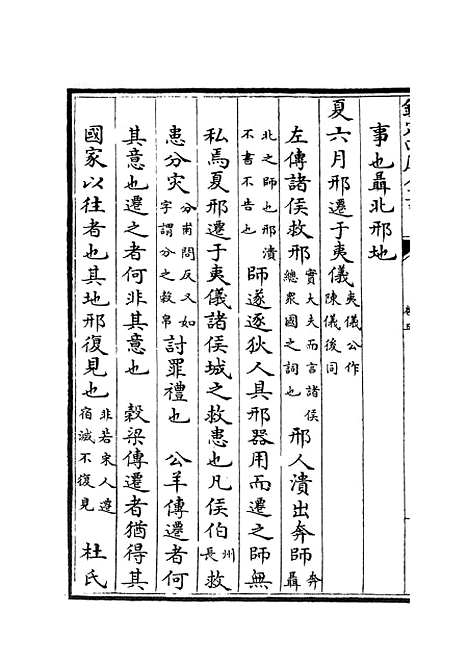 事也聶北邢地
夏六月邢遷于夷儀夷儀公作陳儀後同
左傳諸侯救邢實大夫而言諸侯總衆國之詞也邢人潰出奔師奔聶
北之師也邢潰不書不告也師遂逐狄人具邢器用而遷之師無
私焉夏邢遷于夷儀諸侯城之救患也凡侯伯州長救
患分灾分甫問反又如字謂分之穀帛討罪禮也 公羊傳遷者何
其意也遷之者何非其意也 穀梁傳遷者猶得其
國家以往者也其地邢復見也非若宋人遷宿滅不復見 杜氏